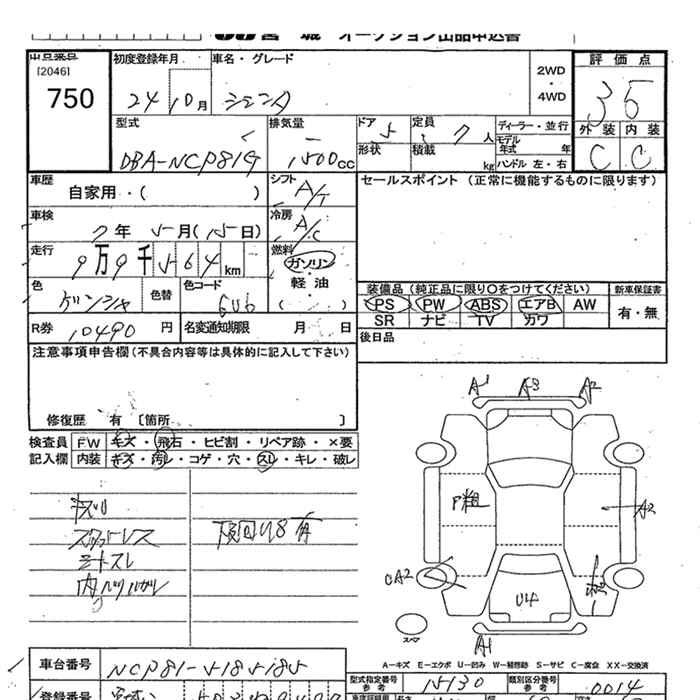 宮城 オークション出品申込書
出品番号
[2046]
750
初度登録年月
24 10月
車名・グレード
シエンタ
2WD
・
4WD
評価点
3.5
外装 内装
C C
型式
DBA-NCP81G
排気量
1500cc
ドア 5
形状
定員 7人
積載 kg
ディーラー・並行
モデル
年式 年
ハンドル 左・右
車歴
自家用・( )
シフト
A/T
セールスポイント (正常に機能するものに限ります)
車検
7年 5月(15日)
冷房
A/C
走行
9万9千564km
燃料
ガソリン
・
軽油
( )
色
色替
色コード
6U6
装備品(純正品に限り○をつけてください) 新車保証書
PS PW ABS エアB AW
SR ナビ TV カワ
有・無
R券 10490円
名変通知期限 月 日
後日品
注意事項申告欄(不具合内容等は具体的に記入して下さい)
修復歴 有 [箇所 ]
検査員 FW キズ・飛石・ヒビ割・リペア跡・×要
記入欄 内装 キズ・汚レ・コゲ・穴・スレ・キレ・破レ
スタットレス
シートスレ
下回りU8有
A1 A3 A2
P粗
A2
CA2
U4
スペア
A1
A=キズ E=エクボ U=凹み W=補修跡 S=サビ C=腐食 XX=交換済
車台番号 NCP81-5185185
型式指定番号
参考
15130
類別区分番号
参考
0014
登録番号 宮城